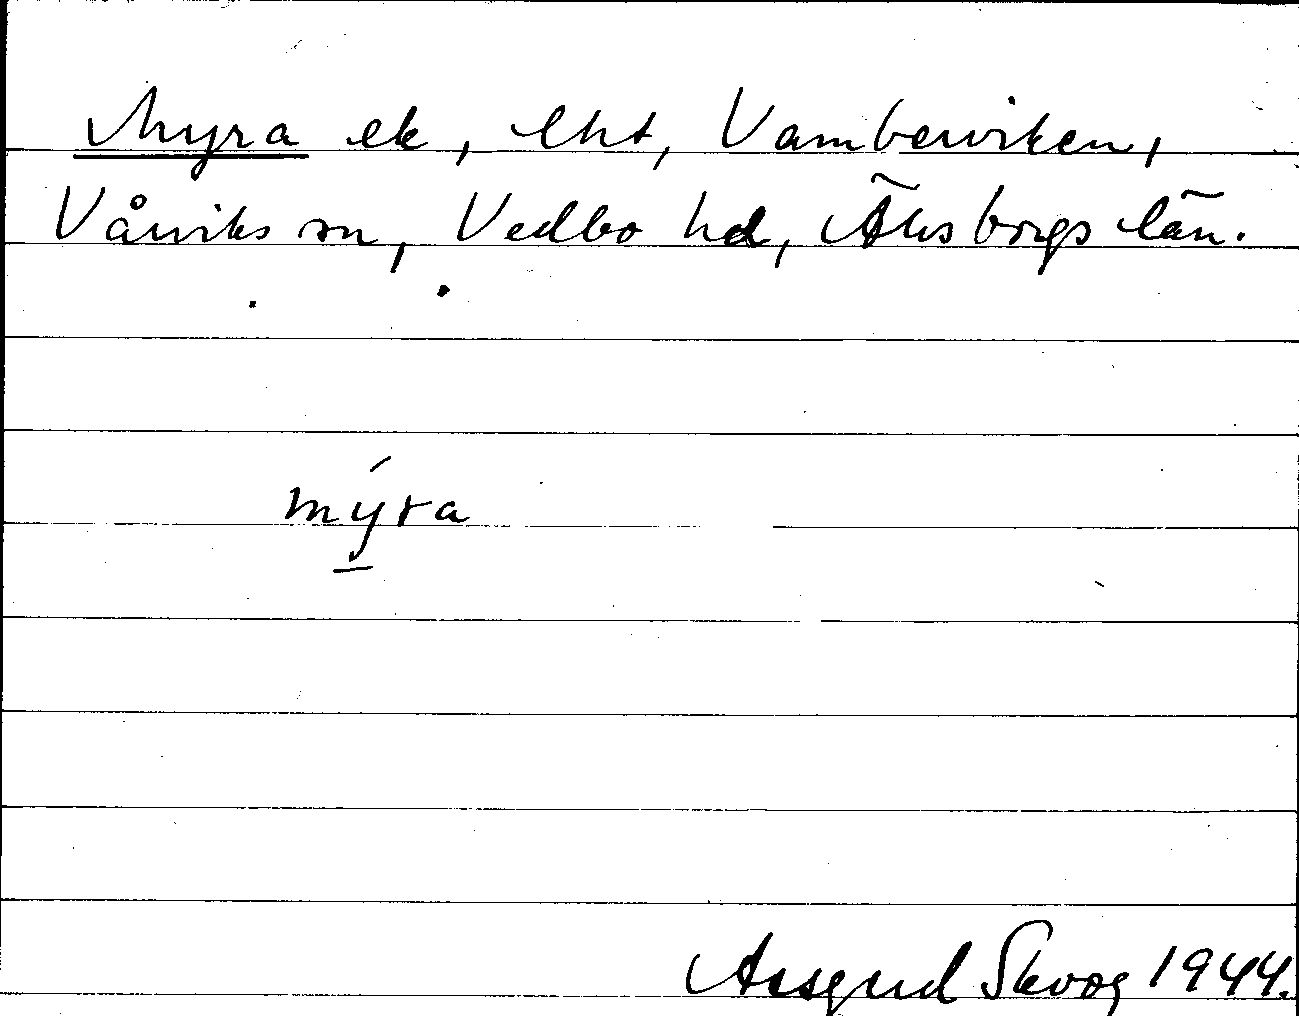 Myra ek, lht, Vamberviken,
Vårviks sn, Vedbo hd, Älvsborgs län.
mýra
Assgerd Skoog 1944.